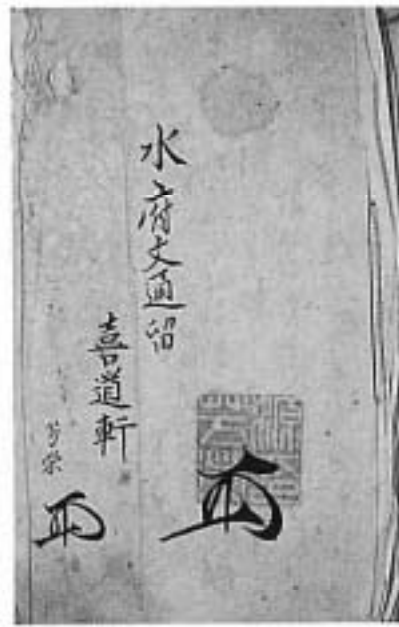 水府文通留
喜道軒
芳榮